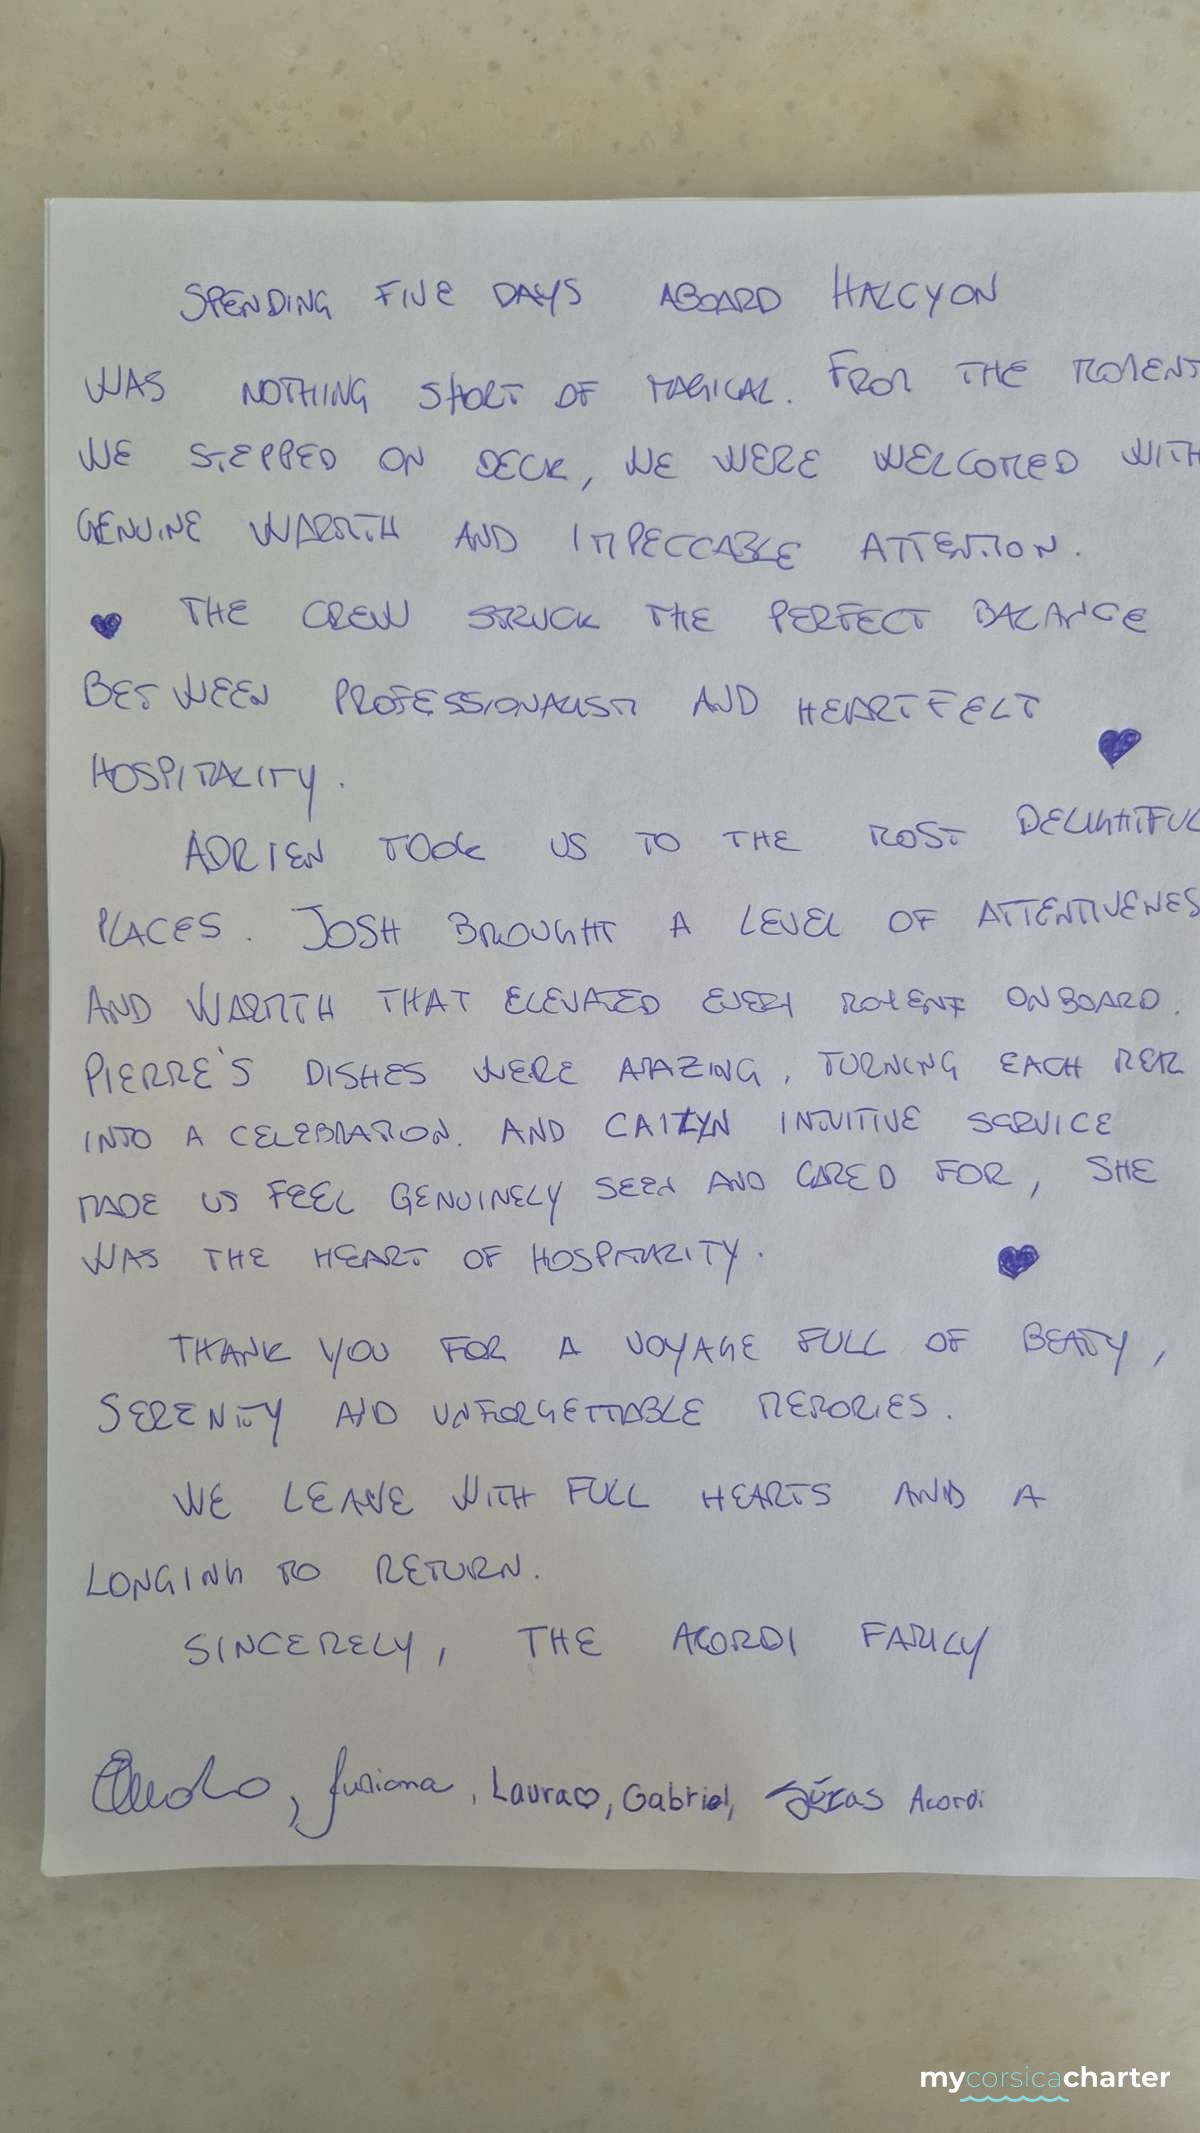 SPENDING FIVE DAYS ABOARD HALCYON
WAS NOTHING SHORT OF MAGICAL. FROM THE MOMENT
WE STEPPED ON DECK, WE WERE WELCOMED WITH
GENUINE WARMTH AND IMPECCABLE ATTENTION.
♥ THE CREW STRUCK THE PERFECT BALANCE
BETWEEN PROFESSIONALISM AND HEARTFELT
HOSPITALITY. ♥
ADRIEN TOOK US TO THE MOST DELIGHTFUL
PLACES. JOSH BROUGHT A LEVEL OF ATTENTIVENES
AND WARMTH THAT ELEVATED EVERY MOMENT ONBOARD.
PIERRE'S DISHES WERE AMAZING, TURNING EACH
INTO A CELEBRATION. AND CAITLYN INTUITIVE SERVICE
MADE US FEEL GENUINELY SEEN AND CARED FOR, SHE
WAS THE HEART OF HOSPITALITY. ♥
THANK YOU FOR A VOYAGE FULL OF BEATY,
SERENITY AND UNFORGETTABLE MEMORIES.
WE LEAVE WITH FULL HEARTS AND A
LONGING TO RETURN.
SINCERELY, THE ACORDI FAMILY
, Juliana, Laura♡, Gabriel, Acordi
mycorsicacharter